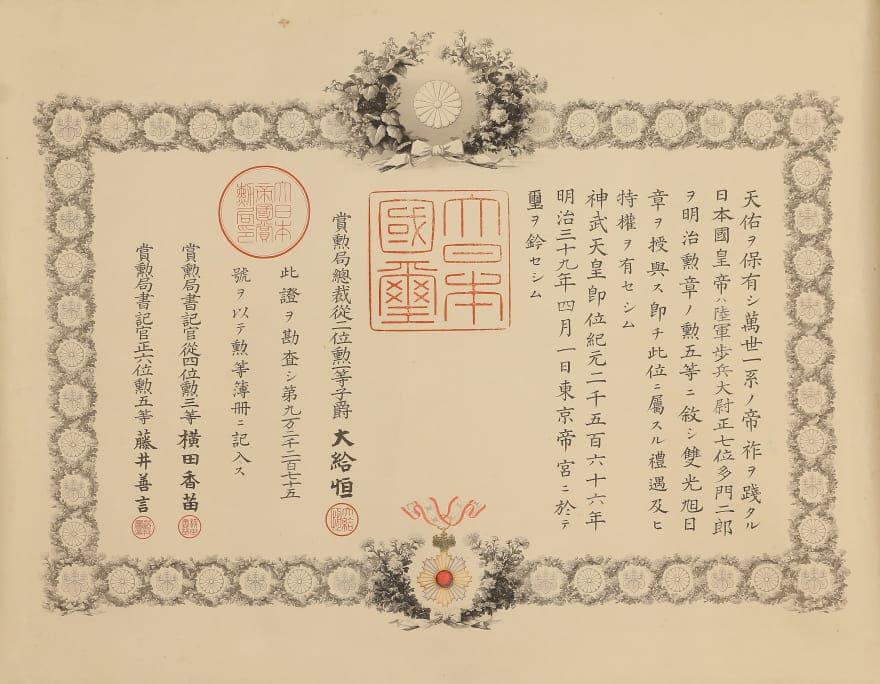 天佑ヲ保有シ萬世一系ノ帝祚ヲ踐タル
日本國皇帝ハ陸軍歩兵大尉正七位多門二郎
ヲ明治勲章ノ勲五等ニ敘シ雙光旭日
章ヲ授與ス即チ此位ニ屬スル禮遇及ヒ
特權ヲ有セシム
神武天皇即位紀元二千五百六十六年
明治三十九年四月一日東京帝宮ニ於テ
璽ヲ鈐セシム
大日本
國璽
賞勲局總裁從二位勲一等子爵大給恒
此證ヲ勘査シ第九万二千二百七十五
號ヲ以テ勲等簿册ニ記入ス
大日本
帝國賞
勲局印
賞勲局書記官從四位勲三等横田香苗
賞勲局書記官正六位勲五等藤井善言